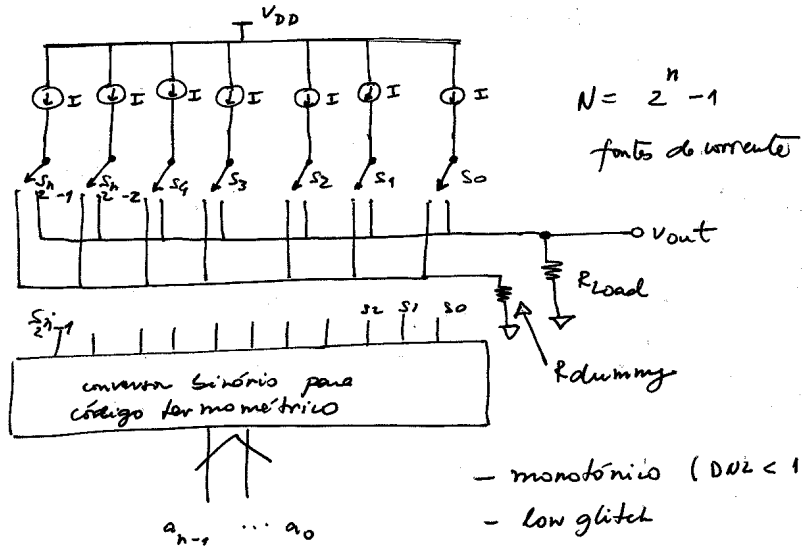 VDD
I I I I I I I
N = 2^n - 1
fontes de corrente
S2^n-1 S2^n-2 S4 S3 S2 S1 S0
Vout
RLoad
Rdummy
S2^n-1 S2 S1 S0
conversor binário para
código termométrico
an-1 ... a0
- monotónico (DNL < 1
- low glitch